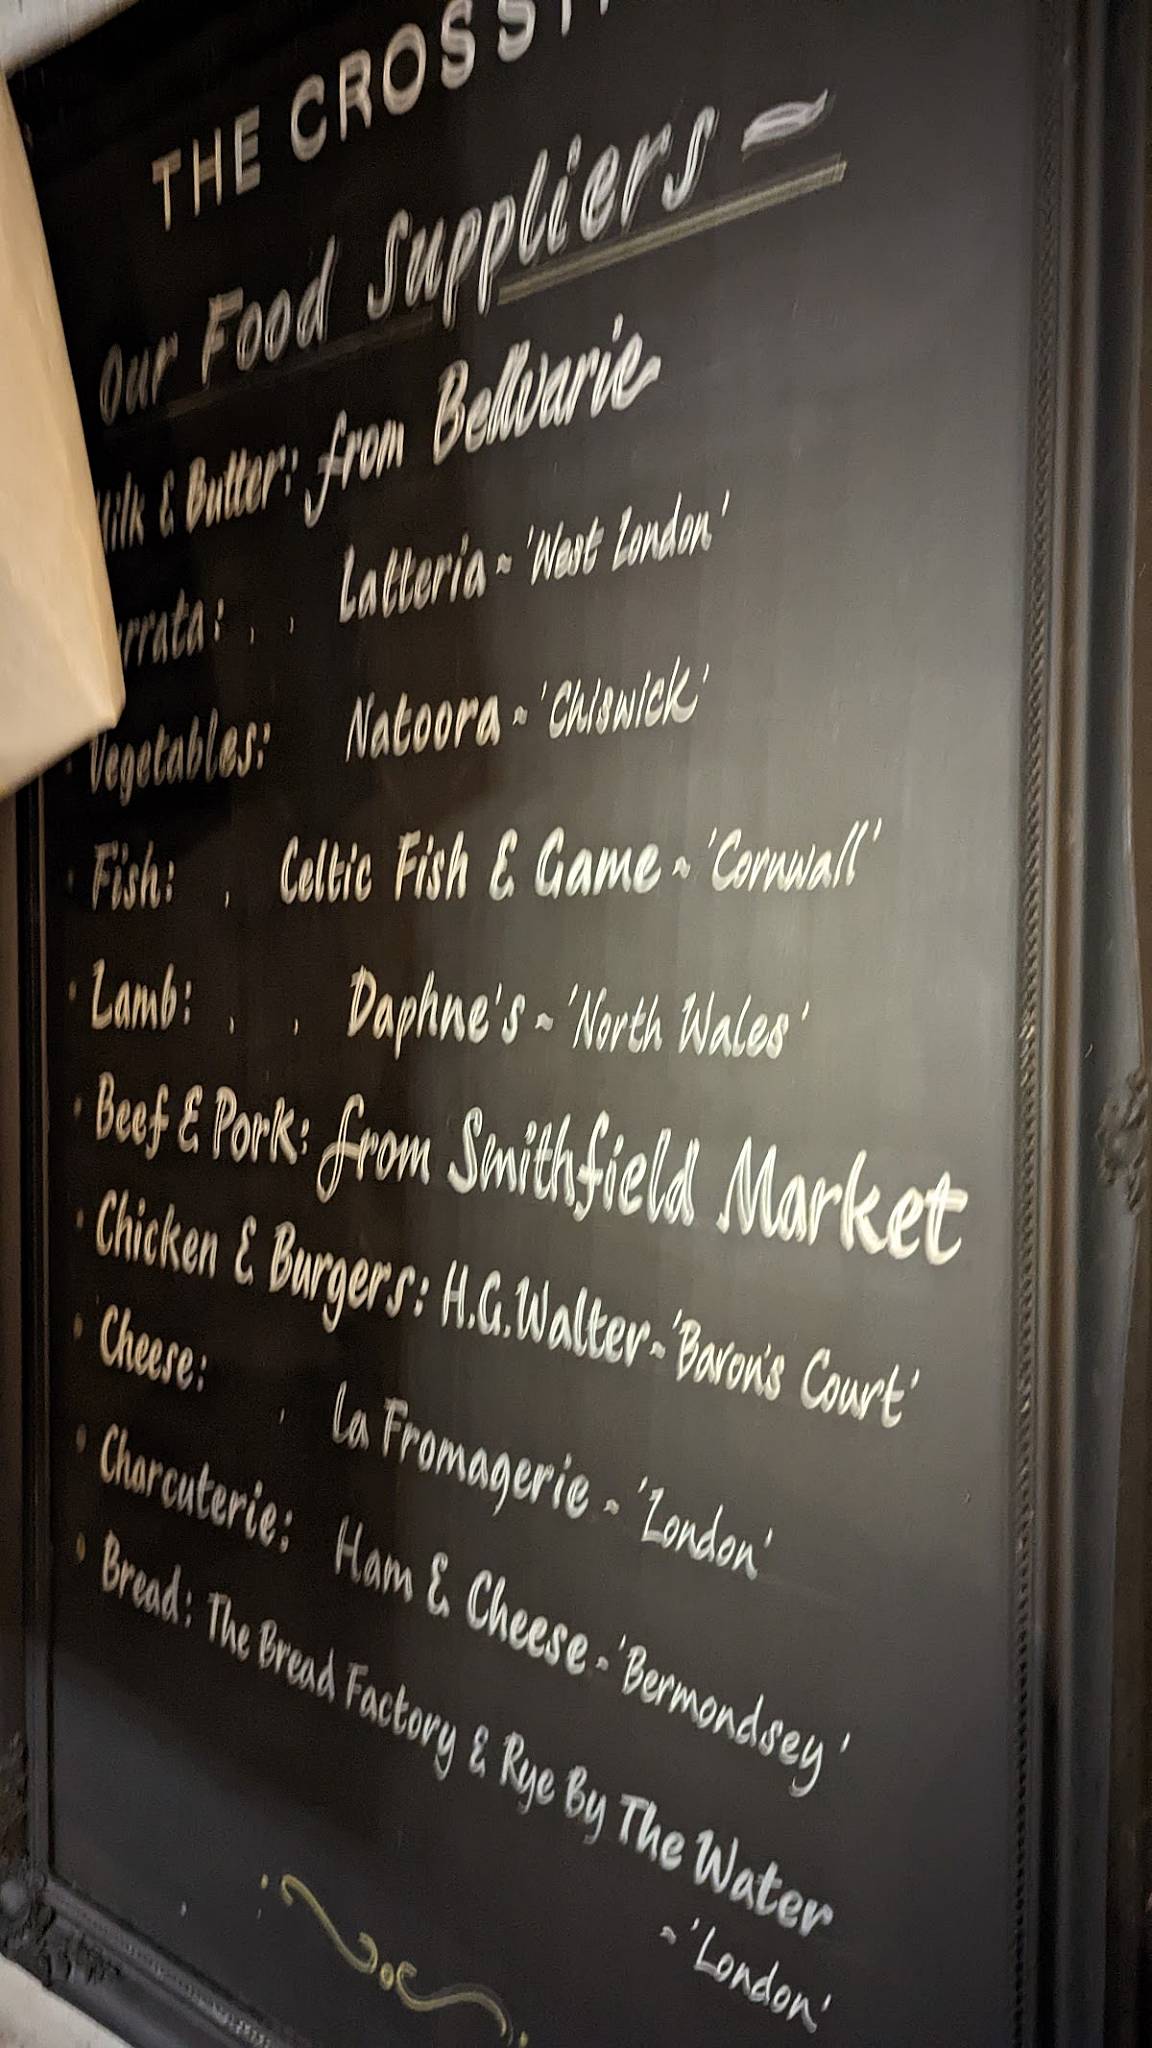 THE CROSS
Our Food Suppliers ~
Milk & Butter: from Bellvarie
rrata: Latteria ~ 'West London'
Vegetables: Natoora ~ 'Chiswick'
• Fish: Celtic Fish & Game ~ 'Cornwall'
• Lamb: Daphne's ~ 'North Wales'
• Beef & Pork: from Smithfield Market
• Chicken & Burgers: H.G.Walter ~ 'Baron's Court'
• Cheese: La Fromagerie ~ 'London'
• Charcuterie: Ham & Cheese ~ 'Bermondsey'
• Bread: The Bread Factory & Rye By The Water
~ 'London'